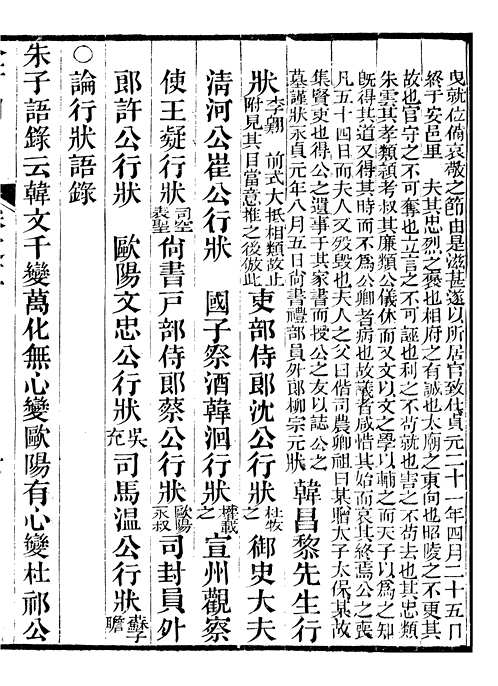 曳就位備哀敬之節由是滋甚遂以所居官致仕貞元二十一年四月二十五日
終于安邑里 夫其忠烈之褒也相府之有誠也太廟之東向也昭陵之不更其
故也官守之不可奪也立言之不可誣也利之不苟就也害之不苟去也其忠類
朱雲其孝類潁考叔其廉類公儀休而又文以文之學以輔之而天子以為之知
旣得其道又得其時而不為公卿者病也故議者咸惜其始而哀其終焉公之喪
凡五十四日而夫人又歿毀也夫人之父曰偕司農卿祖曰某贈太子太保某故
集賢吏也得公之遺事于其家書而授公之友以誌公之
墓謹狀永貞元年八月五日尚書禮部員外郎柳宗元狀 韓昌黎先生行
狀 李翱 前式大抵相類故止附見其目當意推之後倣此 吏部侍郎沈公行狀 杜牧 御史大夫
淸河公崔公行狀 國子祭酒韓洄行狀 權載之 宣州觀察
使王凝行狀 司空表聖 尙書戶部侍郎蔡公行狀 歐陽永叔 司封員外
郎許公行狀 歐陽文忠公行狀 吳充 司馬溫公行狀 蘇子瞻
○論行狀語錄
朱子語錄云韓文千變萬化無心變歐陽有心變杜祁公